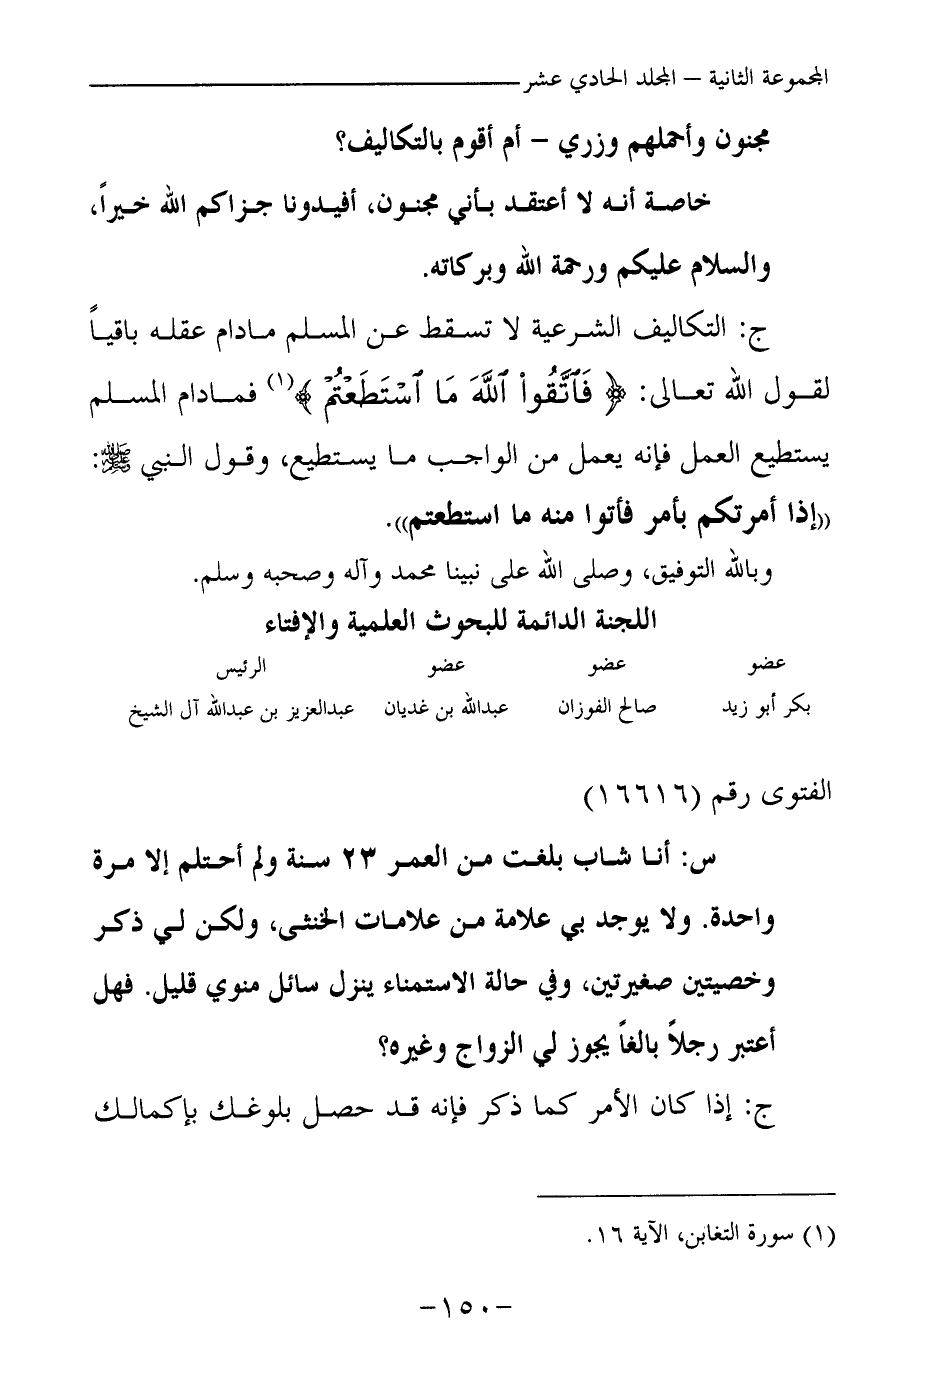 المجموعة الثانية – المجلد الحادي عشر
مجنون وأحملهم وزري – أم أقوم بالتكاليف؟
خاصة أنه لا أعتقد بأني مجنون، أفيدونا جزاكم الله خيراً،
والسلام عليكم ورحمة الله وبركاته.
ج: التكاليف الشرعية لا تسقط عن المسلم مادام عقله باقياً
لقول الله تعالى: ﴿ فَٱتَّقُوا۟ ٱللَّهَ مَا ٱسْتَطَعْتُمْ ﴾(١) فمادام المسلم
يستطيع العمل فإنه يعمل من الواجب ما يستطيع، وقول النبي ﷺ:
((إذا أمرتكم بأمر فأتوا منه ما استطعتم)).
وبالله التوفيق، وصلى الله على نبينا محمد وآله وصحبه وسلم.
اللجنة الدائمة للبحوث العلمية والإفتاء
عضو عضو عضو الرئيس
بكر أبو زيد صالح الفوزان عبدالله بن غديان عبدالعزيز بن عبدالله آل الشيخ
الفتوى رقم (١٦٦١٦)
س: أنا شاب بلغت من العمر ٢٣ سنة ولم أحتلم إلا مرة
واحدة. ولا يوجد بي علامة من علامات الخنثى، ولكن لي ذكر
وخصيتين صغيرتين، وفي حالة الاستمناء ينزل سائل منوي قليل. فهل
أعتبر رجلاً بالغاً يجوز لي الزواج وغيره؟
ج: إذا كان الأمر كما ذكر فإنه قد حصل بلوغك بإكمالك
(١) سورة التغابن، الآية ١٦.
–١٥٠–